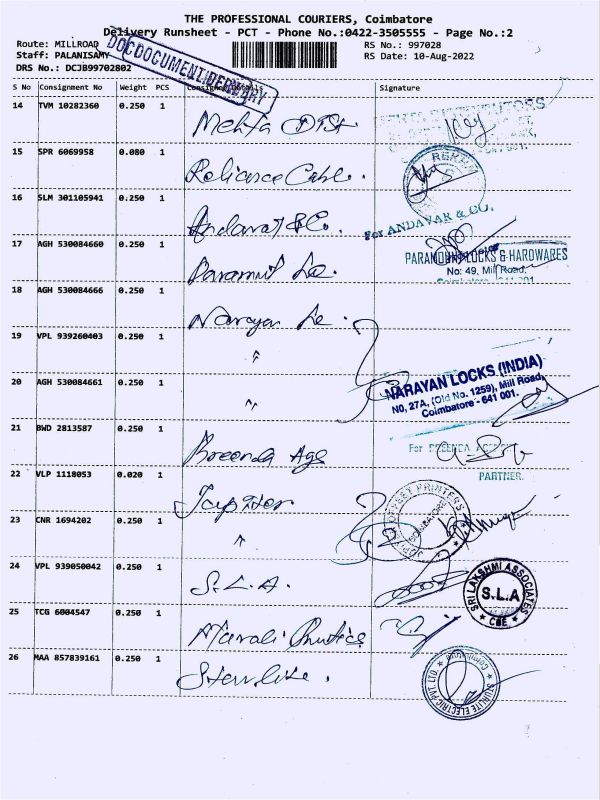 THE PROFESSIONAL COURIERS, Coimbatore
Delivery Runsheet - PCT - Phone No.:0422-3505555 - Page No.:2
Route: MILLROAD
Staff: PALANISAMY
DRS No.: DCJB99702802
RS No.: 997028
RS Date: 10-Aug-2022
DOCDOCUMENT
S No Consignment No Weight PCS Signature
14 TVM 10282360 0.250 1 Mehta Dist
15 SPR 6069958 0.080 1 Reliance Cable.
16 SLM 301105941 0.250 1 Andavar & Co.
For ANDAVAR & CO.
17 AGH 530084660 0.250 1 Paramut Lo
PARAMOUNT LOCKS & HARDWARES
No: 49, Mill Road,
18 AGH 530084666 0.250 1 Narayan Lo.
19 VPL 939260403 0.250 1 "
20 AGH 530084661 0.250 1 "
NARAYAN LOCKS (INDIA)
NO, 27A, (Old No. 1259), Mill Road,
Coimbatore - 641 001.
21 BWD 2813587 0.250 1 Breenda Age
For BREENDA
PARTNER.
22 VLP 1118053 0.020 1 Jupiter
JUPITER OFFSET PRINTERS
COIMBATORE
23 CNR 1694202 0.250 1 "
24 VPL 939050042 0.250 1 S.L.A.
SRI LAKSHMI ASSOCIATES
S.L.A
CBE
25 TCG 6004547 0.250 1 Murali
26 MAA 857839161 0.250 1 Sterlite.
STURLITE ELECTRIC PVT. LTD.
Coimbatore